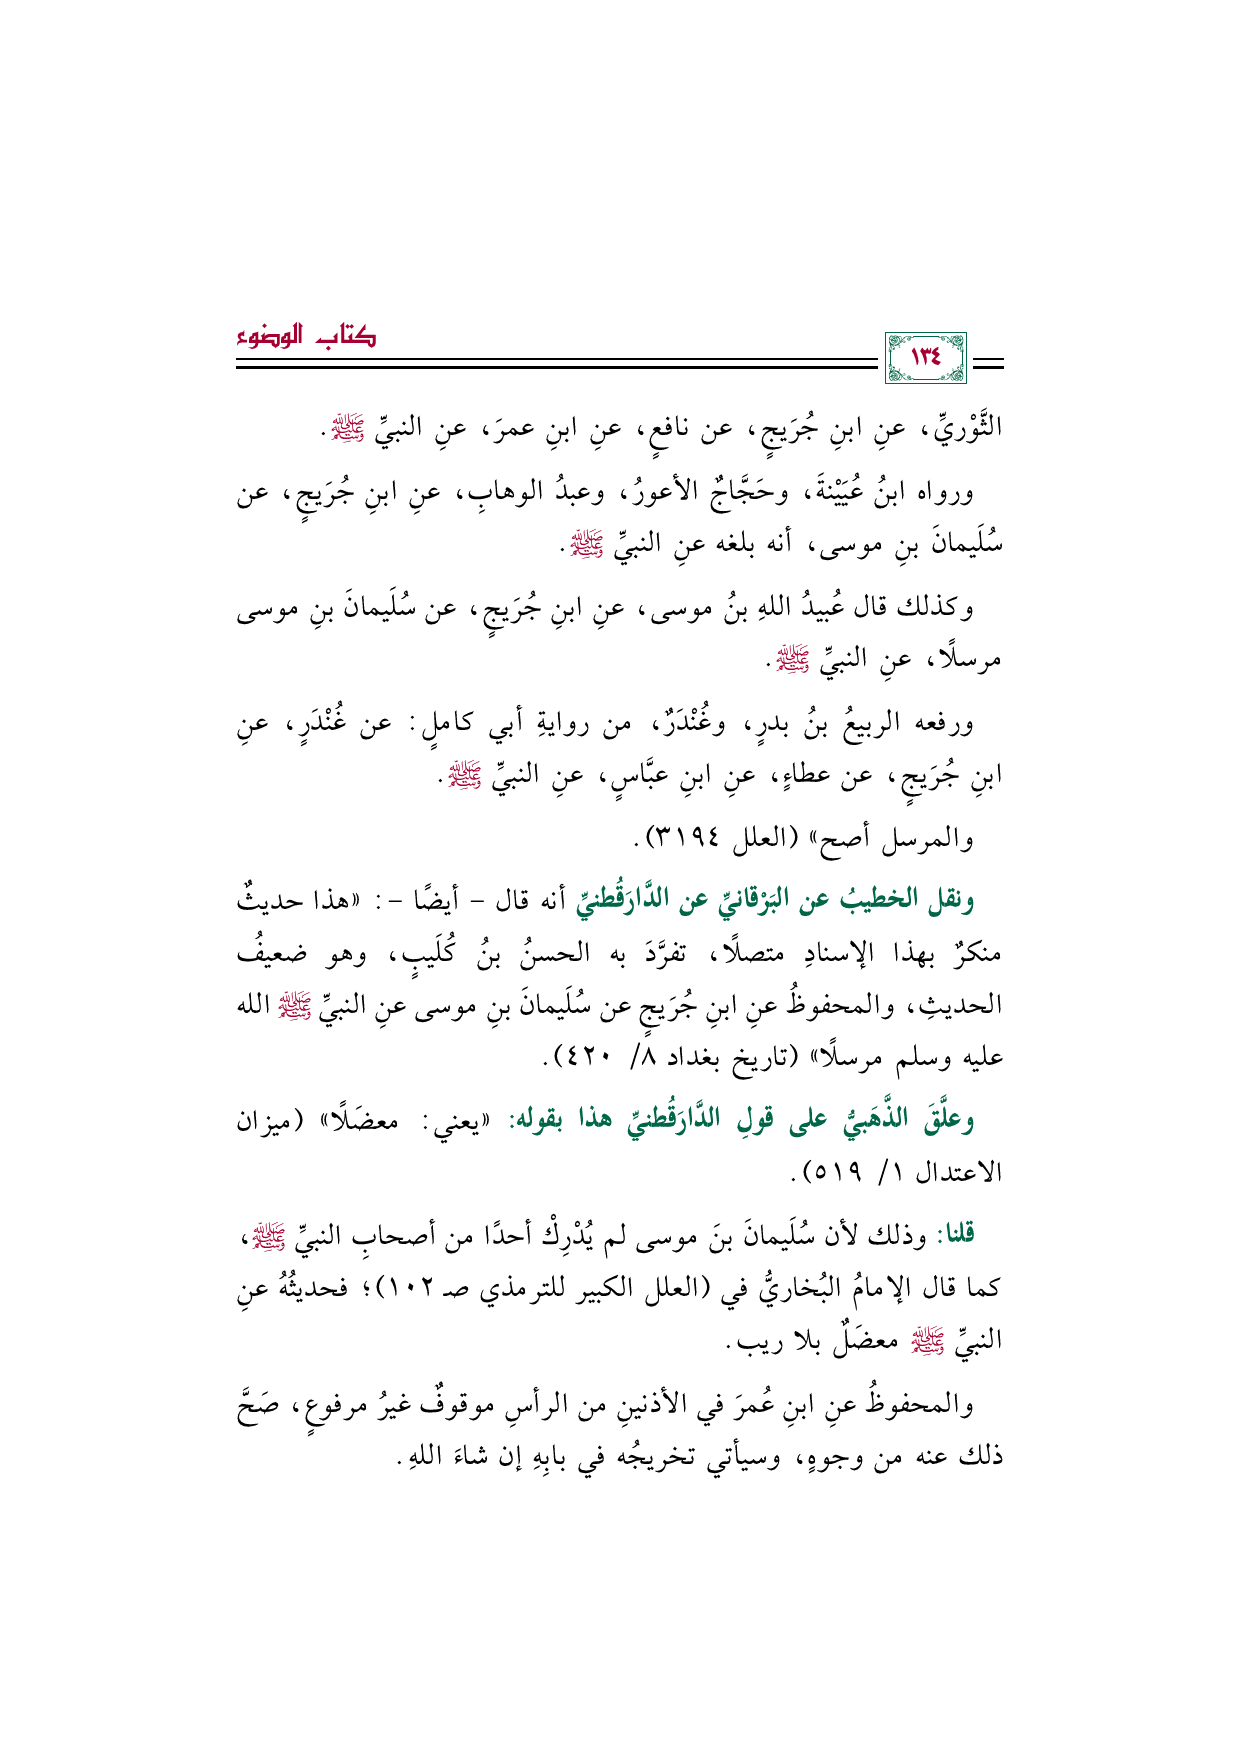 كتاب الوضوء
١٣٤
الثَّوْريِّ، عنِ ابنِ جُرَيجٍ، عن نافعٍ، عنِ ابنِ عمرَ، عنِ النبيِّ ﷺ.
ورواه ابنُ عُيَيْنةَ، وحَجَّاجٌ الأعورُ، وعبدُ الوهابِ، عنِ ابنِ جُرَيجٍ، عن
سُلَيمانَ بنِ موسى، أنه بلغه عنِ النبيِّ ﷺ.
وكذلك قال عُبيدُ اللهِ بنُ موسى، عنِ ابنِ جُرَيجٍ، عن سُلَيمانَ بنِ موسى
مرسلًا، عنِ النبيِّ ﷺ.
ورفعه الربيعُ بنُ بدرٍ، وغُنْدَرٌ، من روايةِ أبي كاملٍ: عن غُنْدَرٍ، عنِ
ابنِ جُرَيجٍ، عن عطاءٍ، عنِ ابنِ عبَّاسٍ، عنِ النبيِّ ﷺ.
والمرسل أصح» (العلل ٣١٩٤).
ونقل الخطيبُ عن البَرْقانيِّ عن الدَّارَقُطنيِّ أنه قال - أيضًا -: «هذا حديثٌ
منكرٌ بهذا الإسنادِ متصلًا، تفرَّدَ به الحسنُ بنُ كُلَيبٍ، وهو ضعيفُ
الحديثِ، والمحفوظُ عنِ ابنِ جُرَيجٍ عن سُلَيمانَ بنِ موسى عنِ النبيِّ ﷺ الله
عليه وسلم مرسلًا» (تاريخ بغداد ٨/ ٤٢٠).
وعلَّقَ الذَّهَبيُّ على قولِ الدَّارَقُطنيِّ هذا بقوله: «يعني: معضَلًا» (ميزان
الاعتدال ١/ ٥١٩).
قلنا: وذلك لأن سُلَيمانَ بنَ موسى لم يُدْرِكْ أحدًا من أصحابِ النبيِّ ﷺ،
كما قال الإمامُ البُخاريُّ في (العلل الكبير للترمذي صـ ١٠٢)؛ فحديثُهُ عنِ
النبيِّ ﷺ معضَلٌ بلا ريب.
والمحفوظُ عنِ ابنِ عُمرَ في الأذنينِ من الرأسِ موقوفٌ غيرُ مرفوعٍ، صَحَّ
ذلك عنه من وجوهٍ، وسيأتي تخريجُه في بابِهِ إن شاءَ اللهِ.